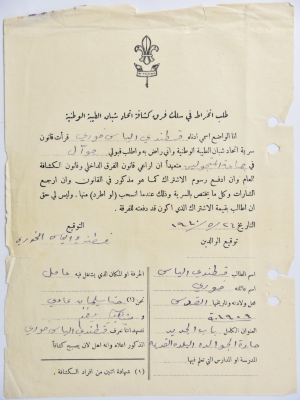 طلب انخراط في سلك فرق كشافة اتحاد شبان الطيبة الوطنية
انا الواضع اسمي ادناه قسطندي الياس خوري قرأت قانون
سرية اتحاد شبان الطيبة الوطنية واني راض به واطلب قبولي جوال
في متعهداً ان اراعي قانون الفرق الداخلي وقانون الكشافة
العام وان ادفع رسوم الاشتراك كما هو مذكور في القانون وان ارجع
الشارات وكل ما يختص بالسرية وذلك عندما انسحب (او اطرد) منها. وليس لي حق
ان اطالب بقيمة الاشتراك الذي اكون قد دفعته للفرقة.
التاريخ
التوقيع
توقيع الوالدين
قسطندي الياس الخوري
اسم الطالب قسطندي الياس
اسم عائلته خوري
محل ولادته وتاريخها القدس
١٩٠٦
العنوان الكامل باب الجديد
حارة الجوالده البلده القديمة
المدرسة او الدارس التي تعلم فيها.
الحرفة او المكان الذي يشتغل فيه عامل
نحن (١)
و
نشهد اننا نعرف قسطندي الياس خوري
المذكور اعلاه وانه اهل لان يصبح كشافاً
(١) شهادة اثنين من افراد الكشافة.